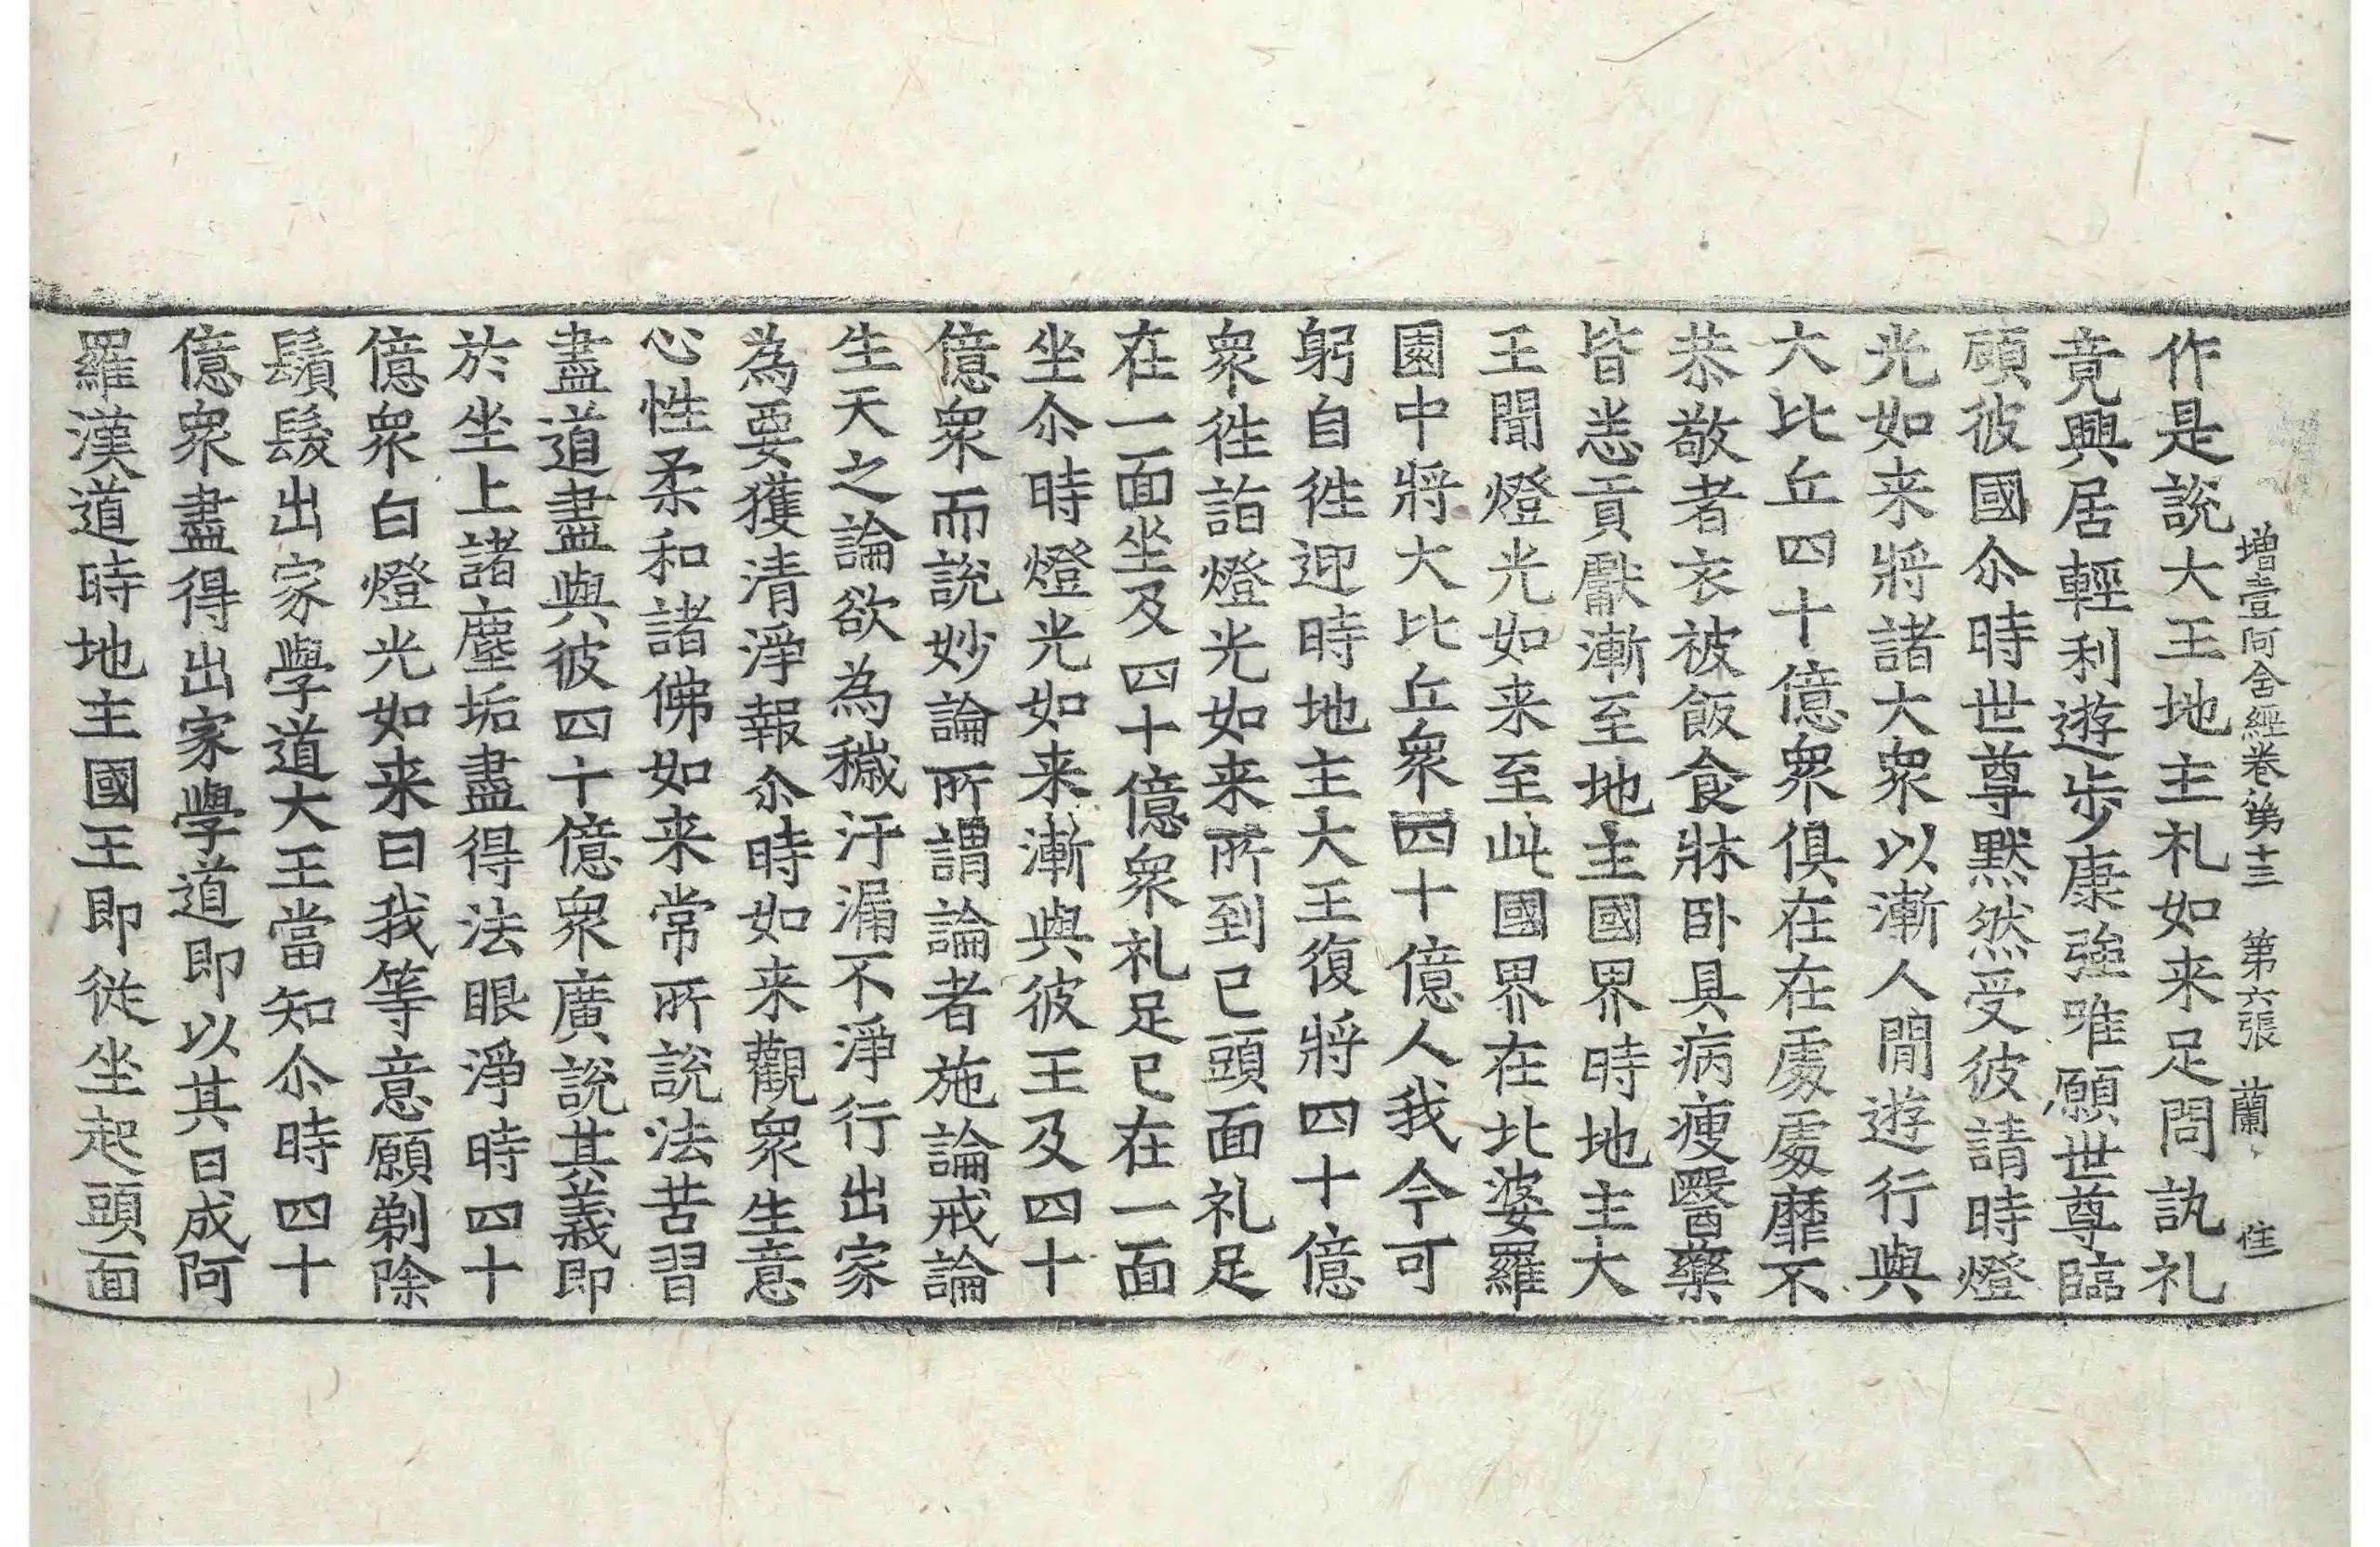 增壹阿含經卷第十三 第六張 蘭 隹
作是說大王地主礼如来足問訊礼
竟興居輕利遊步康强唯願世尊臨
顧彼國尒時世尊默然受彼請時燈
光如来將諸大衆以漸人間遊行與
大比丘四十億衆俱在在處處靡不
恭敬者衣被飯食牀卧具病瘦醫藥
皆悉貢獻漸至地主國界時地主大
王聞燈光如来至此國界在北婆羅
園中將大比丘衆四十億人我今可
躬自徃迎時地主大王復將四十億
衆徃詣燈光如来所到已頭面礼足
在一面坐及四十億衆礼足已在一面
坐尒時燈光如来漸與彼王及四十
億衆而說妙論所謂論者施論戒論
生天之論欲為穢汙漏不淨行出家
為要獲清淨報尒時如来觀衆生意
心性柔和諸佛如来常所說法苦習
盡道盡與彼四十億衆廣說其義即
於坐上諸塵垢盡得法眼淨時四十
億衆白燈光如来曰我等意願剃除
鬚髮出家學道大王當知尒時四十
億衆盡得出家學道即以其日成阿
羅漢道時地主國王即從坐起頭面